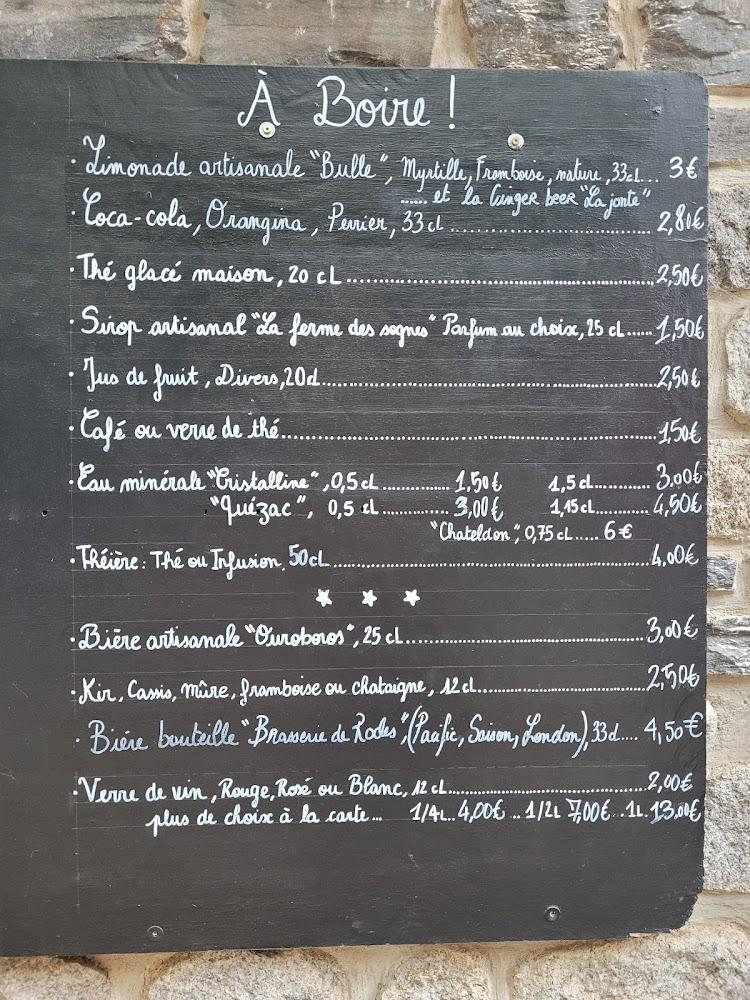 À Boire !
· Limonade artisanale "Bulle", Myrtille, Framboise, nature, 33cL... 3€
...... et la Ginger beer "La jonte"
· Coca-cola, Orangina, Perrier, 33 cL ........................ 2,80€
· Thé glacé maison, 20 cL ........................ 2,50€
· Sirop artisanal "La ferme des sognes" Parfum au choix, 25 cL...... 1,50€
· Jus de fruit, Divers, 20cl........................ 2,50€
· Café ou verre de thé........................ 1,50€
· Eau minérale "Cristalline", 0,5 cL ............. 1,50€ 1,5 cL.......... 3,00€
"Quézac", 0,5 cL ............. 3,00€ 1,15cL.......... 4,50€
"Chateldon", 0,75 cL ..... 6€
· Théière : Thé ou Infusion, 50cL ........................ 4,00€
· Bière artisanale "Ouroboros", 25 cL........................ 3,00€
· Kir, Cassis, Mûre, framboise ou chataigne, 12 cL........................ 2,50€
· Bière bouteille "Brasserie de Rodes", (Pacific, Saison, London), 33cl.... 4,50€
· Verre de vin, Rouge, Rosé ou Blanc, 12 cL........................ 2,00€
plus de choix à la carte... 1/4L. 4,00€ .. 1/2L 7,00€ .. 1L. 13,00€